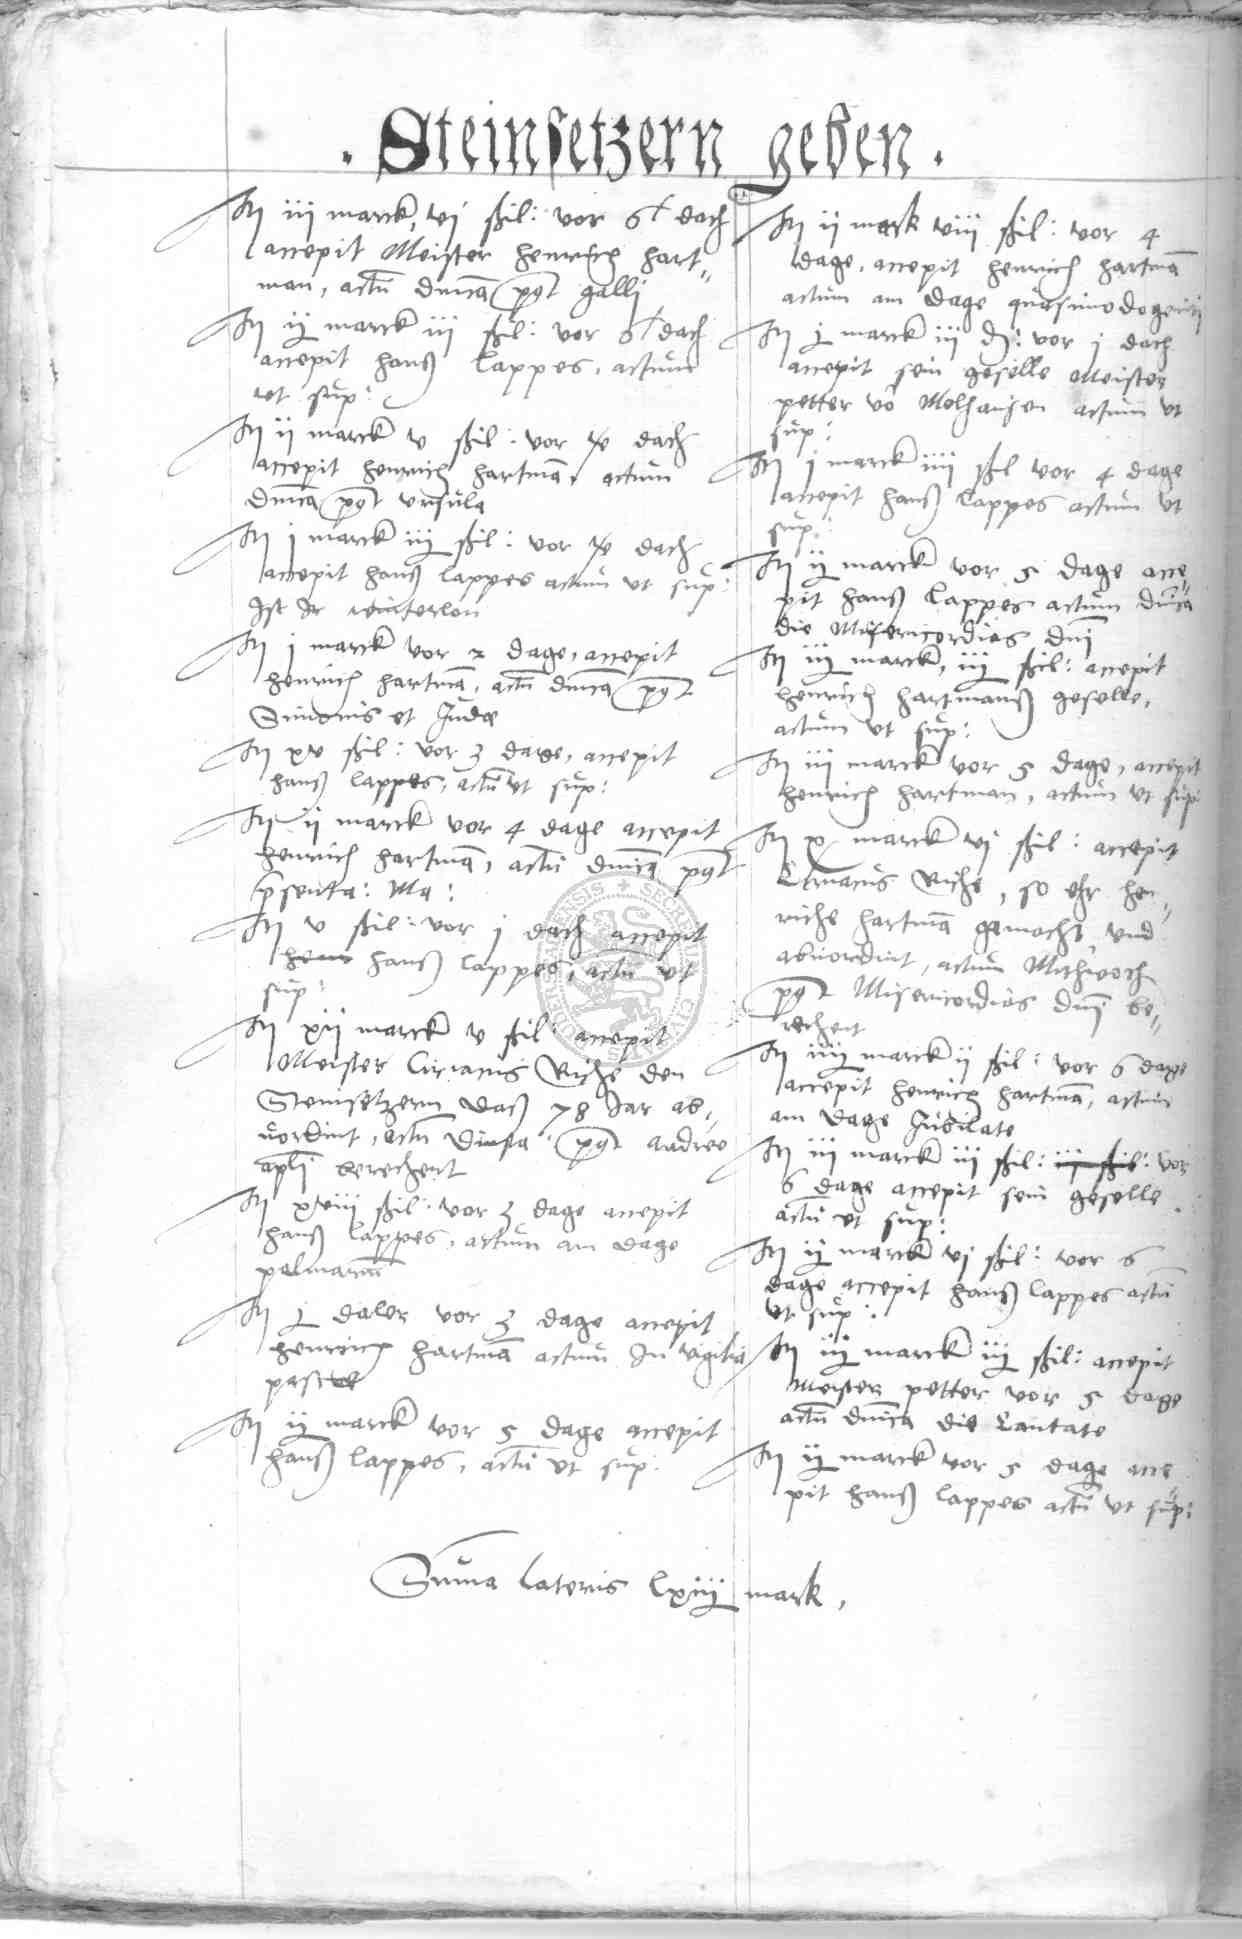 . Steinsetzern geben .
It iij marck, vj ßil: vor 6½ dach
accepit Meister henrich hart-
man, actu dnica post galli
It ij marck iij ßil: vor 6½ dach
accepit hanß lappes, actum
ut sup:
It ij marck v ßil: vor dach
accepit henrich hartma, actum
dnica post ursula
It j marck iij ßil: vor dach
accepit hanß lappes actum ut sup:
Ist Ir winterlon
It j marck vor 2 dage, accepit
henrich hartma, actu dnica post
Simonis et Judae
It xv ßil: vor 3 dage, accepit
hanß lappes, actu ut sup:
It ij marck vor 4 dage accepit
henrich hartma, actu dnica post
psenta: Ma:
It v ßil: vor j dach accepit
hanß lappes, actu ut
sup:
It xij marck v ßil: accepit
Meister Ciriacus Riche den
Steinsetzern daß 78 Jar ab-
vordint, actu post andree
apli berechent
It xviij ßil: vor 3 dage accepit
hanß lappes, actum am dage
palmaru
It j daler vor 3 dage accepit
henrich hartma actum In vigilia
pasce
It ij marck vor 5 dage accepit
hanß lappes, actu ut sup:
It ij mark viij ßil: vor 4
dage, accepit henrich hartma
actum am dage quasimodogeniti
It j marck iij vor j dach
accepit sein geselle Meister
petter vo Molhausen actum ut
sup:
It j marck iiij ßil vor 4 dage
accepit hanß lappes actum ut
sup:
It ij marck vor 5 dage acce-
pit hanß lappes actum dnica
die Misericordias dni
It iij marck, iij ßil: accepit
henrich hartmanß geselle,
actum ut sup:
It iij marck vor 5 dage, accepit
henrich hartman, actum ut sup:
It x marck vj ßil: accepit
Ciriacus Riche, so ehr hen-
riche hartma gemacht, und
abvordint, actum Mithwoch
post Misericordias dni be-
rechent
It iiij marck ij ßil: vor 6 dage
accepit henrich hartma, actum
am dage Jubilate
It iij marck iij ßil: iij ßil: vor
6 dage accepit sein geselle
actu ut sup:
It ij marck vj ßil: vor 6
dage accepit hanß lappes actu
ut sup:
It iij marck iij ßil: accepit
Meister petter vor 5 dage
actu dnica die Cantate
It ij marck vor 5 dage acce-
pit hanß lappes actu ut sup:
Suma lateris mark,